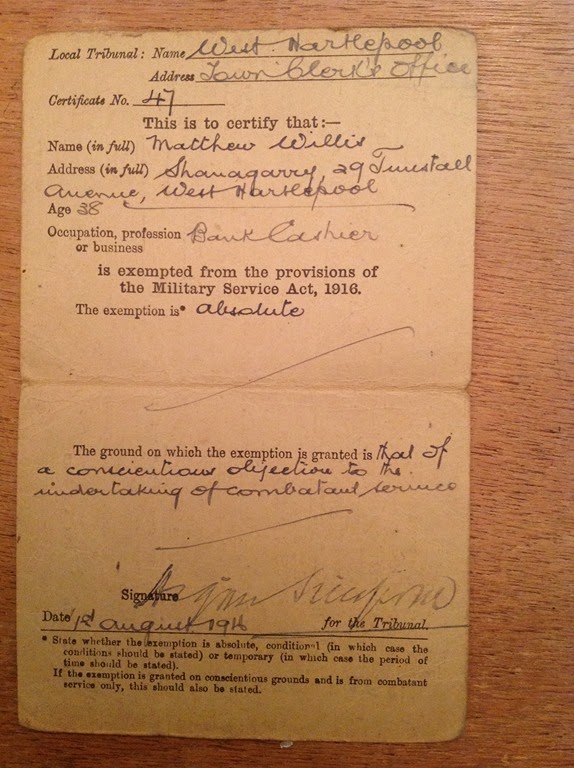 Local Tribunal: Name West Hartlepool
Address Town Clerk's Office
Certificate No. 47
This is to certify that:—
Name (in full) Matthew Willis
Address (in full) Shanagarry, 29 Tunstall
Avenue, West Hartlepool
Age 38
Occupation, profession Bank Cashier
or business
is exempted from the provisions of
the Military Service Act, 1916.
The exemption is* absolute
The ground on which the exemption is granted is that of
a conscientious objection to the
undertaking of combatant service
Signature
Date 1st August 1916 for the Tribunal.
* State whether the exemption is absolute, conditional (in which case the
conditions should be stated) or temporary (in which case the period of
time should be stated).
If the exemption is granted on conscientious grounds and is from combatant
service only, this should also be stated.